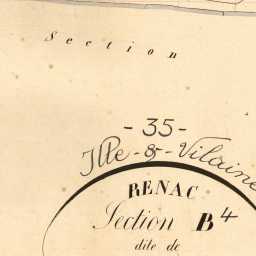 Section
- 35 -
Ille - & - Vilaine
RENAC
Section B4
dite de